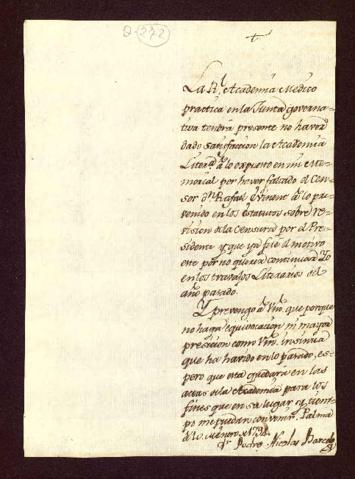 Q-222
+
La Rˡ. Academia Medico
practica en la Junta governa-
tiva tendrá presente no haver
dado satisfaccion la Academia
Literaª à lo expuesto en mi me-
morial por haver faltado el Cen-
sor Dⁿ. Rafael à lo pre-
venido en los Estatutos sobre re-
vision de la Censura por el Pre-
sidente y que
este por no querer continuar Yo
en los travalos Literarios del
año pasado.
Y prevengo à Vm. que porque
no haga equivocacion ni mayor
precision como Vm. insinua
que ha havido en lo pasado, es-
pero que esta quedará en las
actas de la Academia para los
fines que en su lugar y tiem-
po me puedan convenir. Palma
Enero
Pedro Nicolas Barcelo